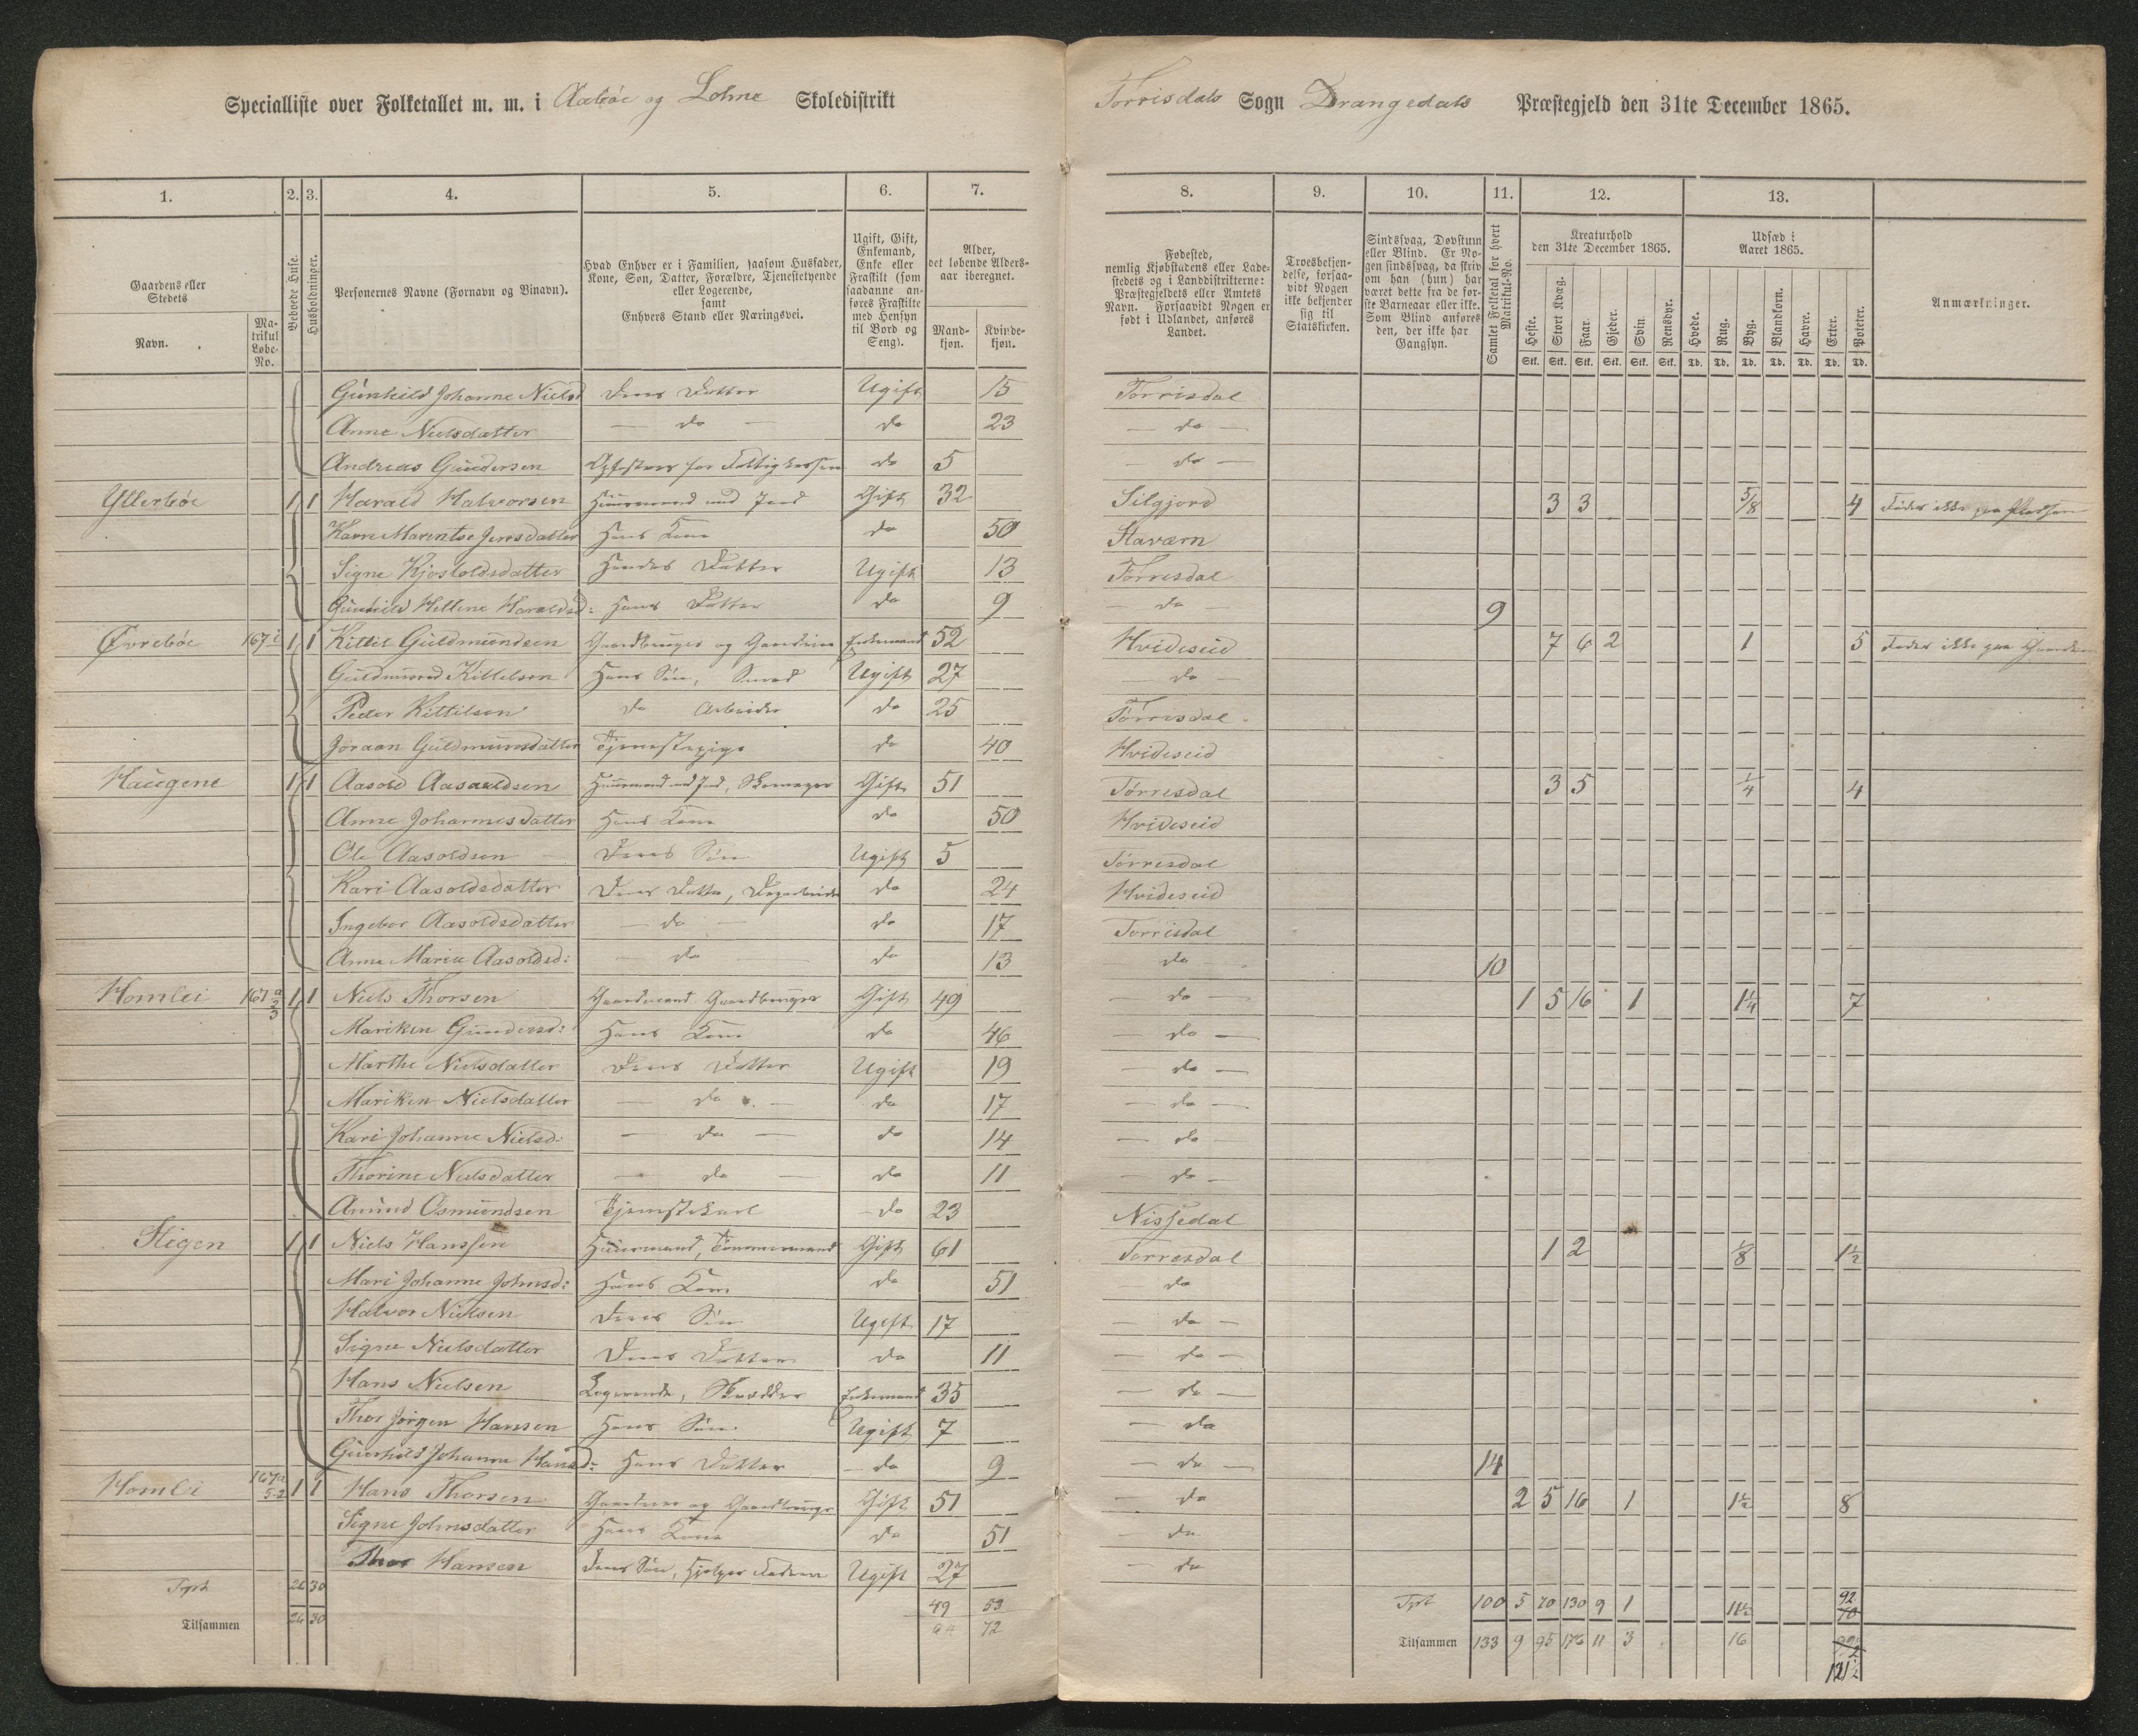 Specialliste over Folketallet m. m. i Aabøe og Lohne Skoledistrikt
Tørrisdals Sogn Drangedals Præstegjeld den 31te December 1865.
1. 2. 3. 4. 5. 6. 7. 8. 9. 10. 11. 12. 13.
Gaardens eller Stedets
Navn.
Matrikul Løbe-No.
Beboede Huse.
Husholdninger.
Personernes Navne (Fornavn og Binavn).
Hvad Enhver er i Familien, saasom Husfader, Kone, Søn, Datter, Forældre, Tjenestetyende eller Logerende, samt Enhvers Stand eller Næringsvei.
Ugift, Gift, Enkemand, Enke eller Fraskilt (som saadanne anføres Fraskilte med Hensyn til Bord og Seng).
Alder, det løbende Alders-aar iberegnet.
Mand-kjøn. Kvinde-kjøn.
Fødested, nemlig Kjøbstadens eller Lade-stedets og i Landdistrikterne: Præstegjeldets eller Amtets Navn. Forsaavidt Nogen er født i Udlandet, anføres Landet.
Troesbekjen-delse, forsaa-vidt Nogen ikke bekjender sig til Statskirken.
Sindssvag, Døvstum eller Blind. Er No-gen sindssvag, da skriv om han (hun) har været dette fra de før-ste Barneaar eller ikke. Som Blind anføres den, der ikke har Gangsyn.
Samlet Folketal for hvert Matrikul-No.
Kreaturhold den 31te December 1865.
Heste. Stort Kvæg. Faar. Gjeder. Svin. Rensdyr.
Stk. Stk. Stk. Stk. Stk. Stk.
Udsæd i Aaret 1865.
Hvede. Rug. Byg. Blandkorn. Havre. Erter. Poteter.
Td. Td. Td. Td. Td. Td. Td.
Anmærkninger.
Gunhild Johanne Nielsd Deres Datter Ugift 15 Torrisdal
Anne Nielsdatter — do — do 23 — do —
Andreas Gundersen do 5 — do —
Ytterbøe 1 1 Harald Halvorsen Huusmand med Jord Gift 32 Silgjord 3 3 5/8 4 Føder ikke paa Pladsen
Karn Marentse Jensdatter Hans Kone do 50 Staværn
Signe Kjostoldsdatter Hendes Datter Ugift 13 Tørresdal
Gunhild Hellene Haraldsd: Hans Datter do 9 — do 9
Øvrebøe 167 1 1 Kittil Guldmundsen Gaardbruger og Enkemand 52 Hvideseid 7 6 2 1 5 Føder ikke paa Gaarden
Guldmund Kittelsen Hans Søn, Smed Ugift 27 — do —
Peder Kittilsen do Arbeider do 25 Tørrisdal
Joraan Guldmunsdatter Tjenestepige do 40 Hvideseid
Haugene 1 1 Aasold Aasauldsen Huusmand med Jord, Skomager Gift 51 Tørresdal 3 5 1/4 4
Anne Johannesdatter Hans Kone do 50 Hvideseid
Ole Aasoldsen Deres Søn Ugift 5 Tørresdal
Kari Aasoldsdatter Deres Datter, do 24 Hvideseid
Ingebor Aasoldsdatter — do — do 17 Torrisdal
Anne Marie Aasoldsd: — do — do 13 do — 10
Homlei 167 a 2 3 1 1 Niels Thorsen Gaardmand Gaardbruger Gift 49 — do — 1 5 16 1 1¼ 7
Mariken Gundersd: Hans Kone do 46 — do —
Marthe Nielsdatter Deres Datter Ugift 19 — do —
Mariken Nielsdatter — do — do 17 — do —
Kari Johanne Nielsd: — do — do 14 — do
Thorine Nielsdatter — do — do 11 — do —
Amund Osmundsen Tjenestekarl do 23 Nissedal
Stigen 1 1 Niels Hanssen Huusmand, Tømmermand Gift 61 Torresdal 1 2 1/8 1½
Mari Johanne Johnsd: Hans Kone do 51 do
Halvor Nielsen Deres Søn Ugift 17 — do —
Signe Nielsdatter Deres Datter do 11 — do —
Hans Nielsen Logerende, Skrædder Enkemand 35 — do —
Thor Jørgen Hansen Hans Søn Ugift 7 — do
Gunhild Johanne Hansd: Hans Datter — do 9 — do — 14
Homlei 167 a 5.2 1 1 Hans Thorsen Gaardeier og Gaardbruger Gift 51 — do 2 5 16 1 1½ 8
Signe Johnsdatter Hans Kone do 51 — do
Thor Hansen Deres Søn, hjelper Faderen Ugift 27 — do
26 30 49 53 100 5 70 130 9 1 11½ 92
Tilsammen 26 30 72 Tilsammen 133 9 95 176 11 3 16 121½